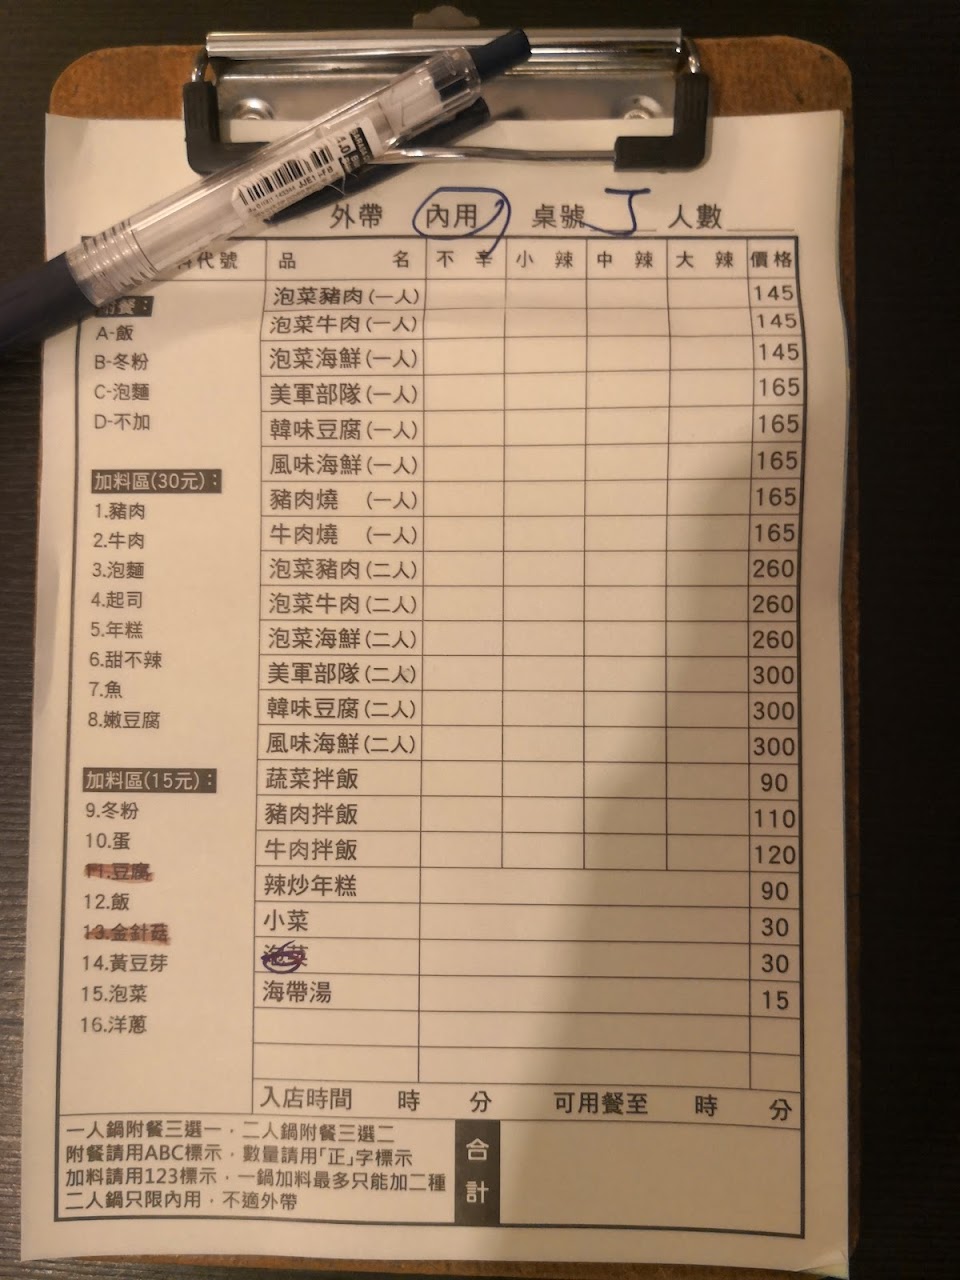 外帶 內用 桌號 J 人數
代號 品名 不辛 小辣 中辣 大辣 價格
附餐：
A-飯
B-冬粉
C-泡麵
D-不加
加料區(30元)：
1.豬肉
2.牛肉
3.泡麵
4.起司
5.年糕
6.甜不辣
7.魚
8.嫩豆腐
加料區(15元)：
9.冬粉
10.蛋
11.豆腐
12.飯
13.金針菇
14.黃豆芽
15.泡菜
16.洋蔥
泡菜豬肉(一人) 145
泡菜牛肉(一人) 145
泡菜海鮮(一人) 145
美軍部隊(一人) 165
韓味豆腐(一人) 165
風味海鮮(一人) 165
豬肉燒 (一人) 165
牛肉燒 (一人) 165
泡菜豬肉(二人) 260
泡菜牛肉(二人) 260
泡菜海鮮(二人) 260
美軍部隊(二人) 300
韓味豆腐(二人) 300
風味海鮮(二人) 300
蔬菜拌飯 90
豬肉拌飯 110
牛肉拌飯 120
辣炒年糕 90
小菜 30
泡菜 30
海帶湯 15
入店時間 時 分 可用餐至 時 分
一人鍋附餐三選一，二人鍋附餐三選二
附餐請用ABC標示，數量請用「正」字標示
加料請用123標示，一鍋加料最多只能加二種
二人鍋只限內用，不適外帶
合計